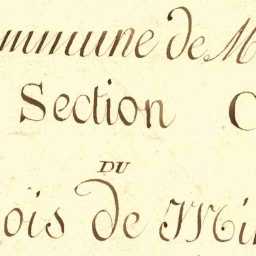 ommune de M
Section C
DU
ois de Mil